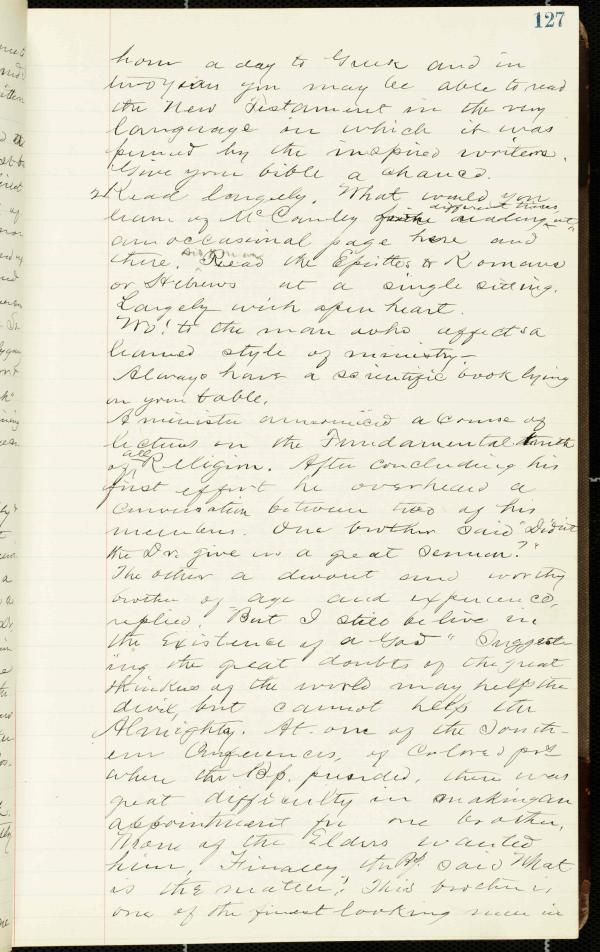 127
hour a day to Greek and in
two years you may be able to read
the New Testament in the very
language in which it was
penned by the inspired writers.
Give your bible a chance.
2 Read largely. What would you
different times,
learn of McCauley reading at
an occasional page here and
there. Read the Epistles to Romans
or Hebrews at a single sitting.
Largely with open heart.
Wo! to the man who affects a
learned style of ministry—
Always have a scientific book lying
on your table.
A minister announced a course of
lectures on the Fundamental truth
all
of Religion. After concluding his
first effort he overheard a
conversation between two of his
members. One brother said "Didn't
the Dr. give us a great sermon?"
The other a devout and worthy
brother of age and experience,
replied. "But I still believe in
the existence of a God" Suggest
ing the great doubts of the great
thinkers of the world may help the
devil, but cannot help the
Almighty. At one of the South-
ern Conferences, of Colored prs
where the Bp. presided, there was
great difficulty in making an
appointment for one brother.
None of the Elders wanted
him, Finally the Bp. said "What
is the matter? This brother is
one of the finest looking men in